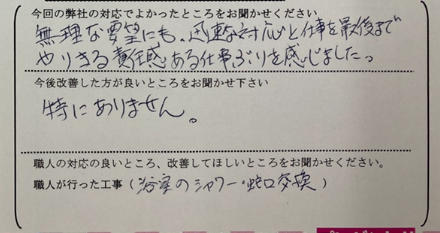 今回の弊社の対応でよかったところをお聞かせください
無理な要望にも、迅速な対応と仕事を最後まで
やりきる責任感ある仕事ぶりを感じました。
今後改善した方が良いところをお聞かせ下さい
特にありません。
職人の対応の良いところ、改善してほしいところをお聞かせください。
職人が行った工事（浴室のシャワー・蛇口交換）